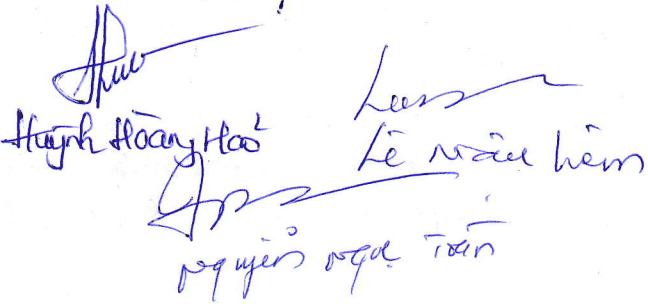 Huỳnh Hoàng Hảo
Lê Mậu Liêm
Nguyễn Ngọc Trấn